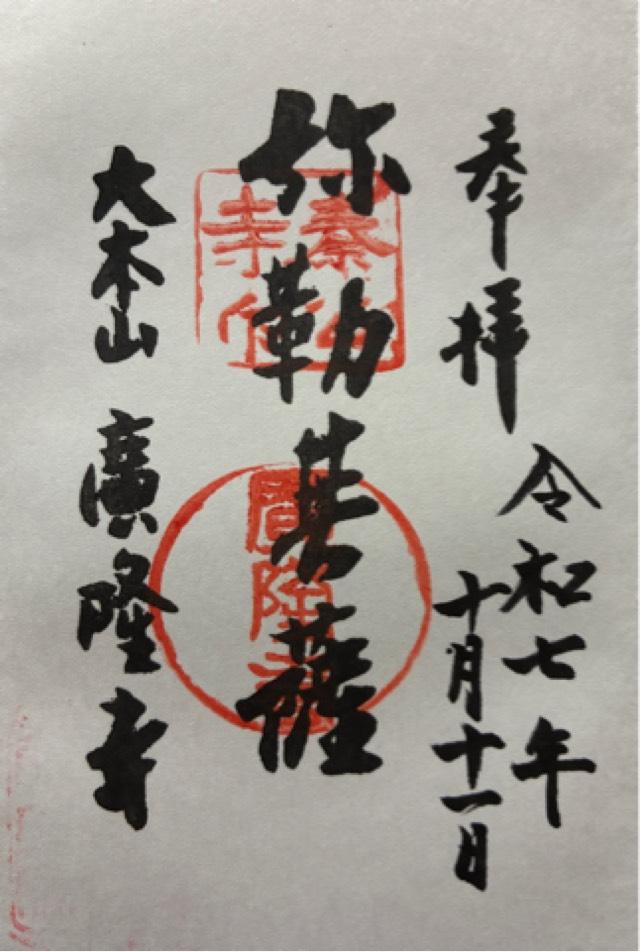 奉拝
令和七年
十月十一日
弥勒菩薩
秦公
寺
廣隆寺
大本山 廣隆寺